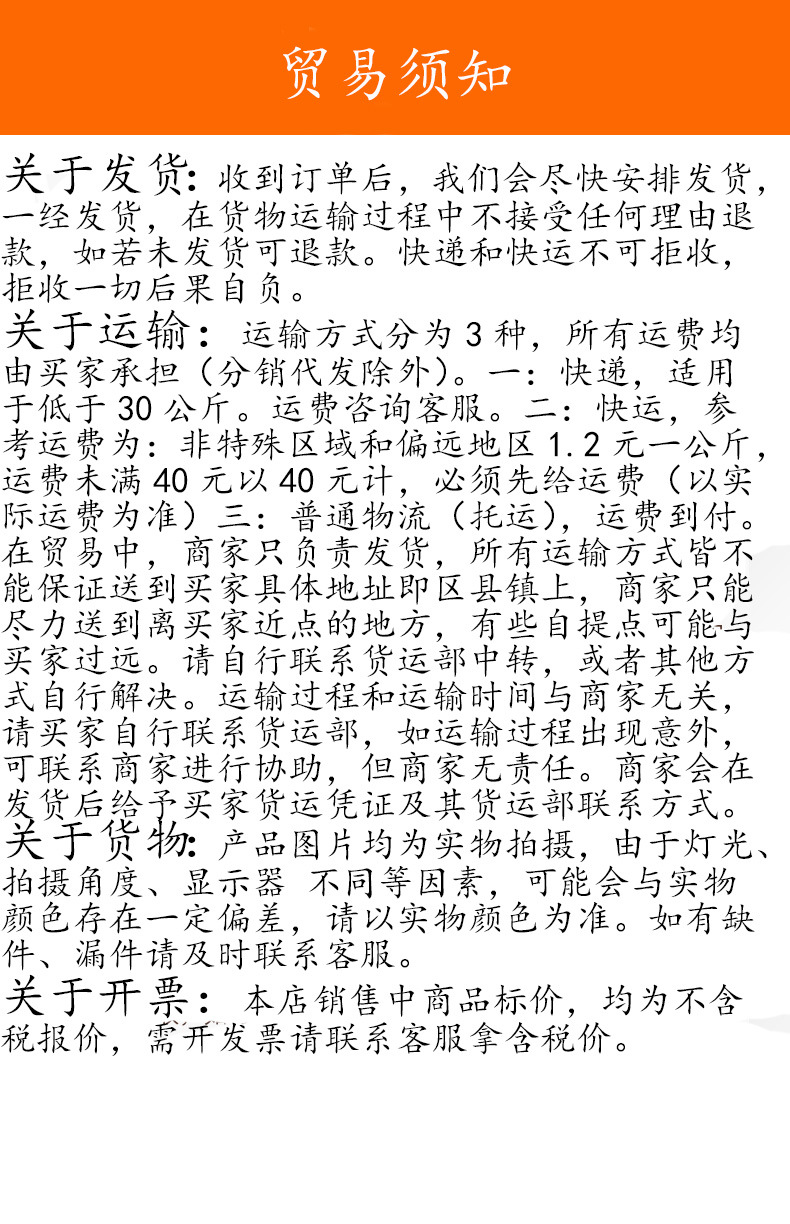 贸易须知
关于发货:收到订单后，我们会尽快安排发货，
一经发货，在货物运输过程中不接受任何理由退
款，如若未发货可退款。快递和快运不可拒收，
拒收一切后果自负。
关于运输：运输方式分为3种，所有运费均
由买家承担（分销代发除外）。一：快递，适用
于低于30公斤。运费咨询客服。二：快运，参
考运费为：非特殊区域和偏远地区1.2元一公斤，
运费未满40元以40元计，必须先给运费（以实
际运费为准）三：普通物流（托运），运费到付。
在贸易中，商家只负责发货，所有运输方式皆不
能保证送到买家具体地址即区县镇上，商家只能
尽力送到离买家近点的地方，有些自提点可能与
买家过远。请自行联系货运部中转，或者其他方
式自行解决。运输过程和运输时间与商家无关，
请买家自行联系货运部，如运输过程出现意外，
可联系商家进行协助，但商家无责任。商家会在
发货后给予买家货运凭证及其货运部联系方式。
关于货物:产品图片均为实物拍摄，由于灯光、
拍摄角度、显示器 不同等因素，可能会与实物
颜色存在一定偏差，请以实物颜色为准。如有缺
件、漏件请及时联系客服。
关于开票：本店销售中商品标价，均为不含
税报价，需开发票请联系客服拿含税价。